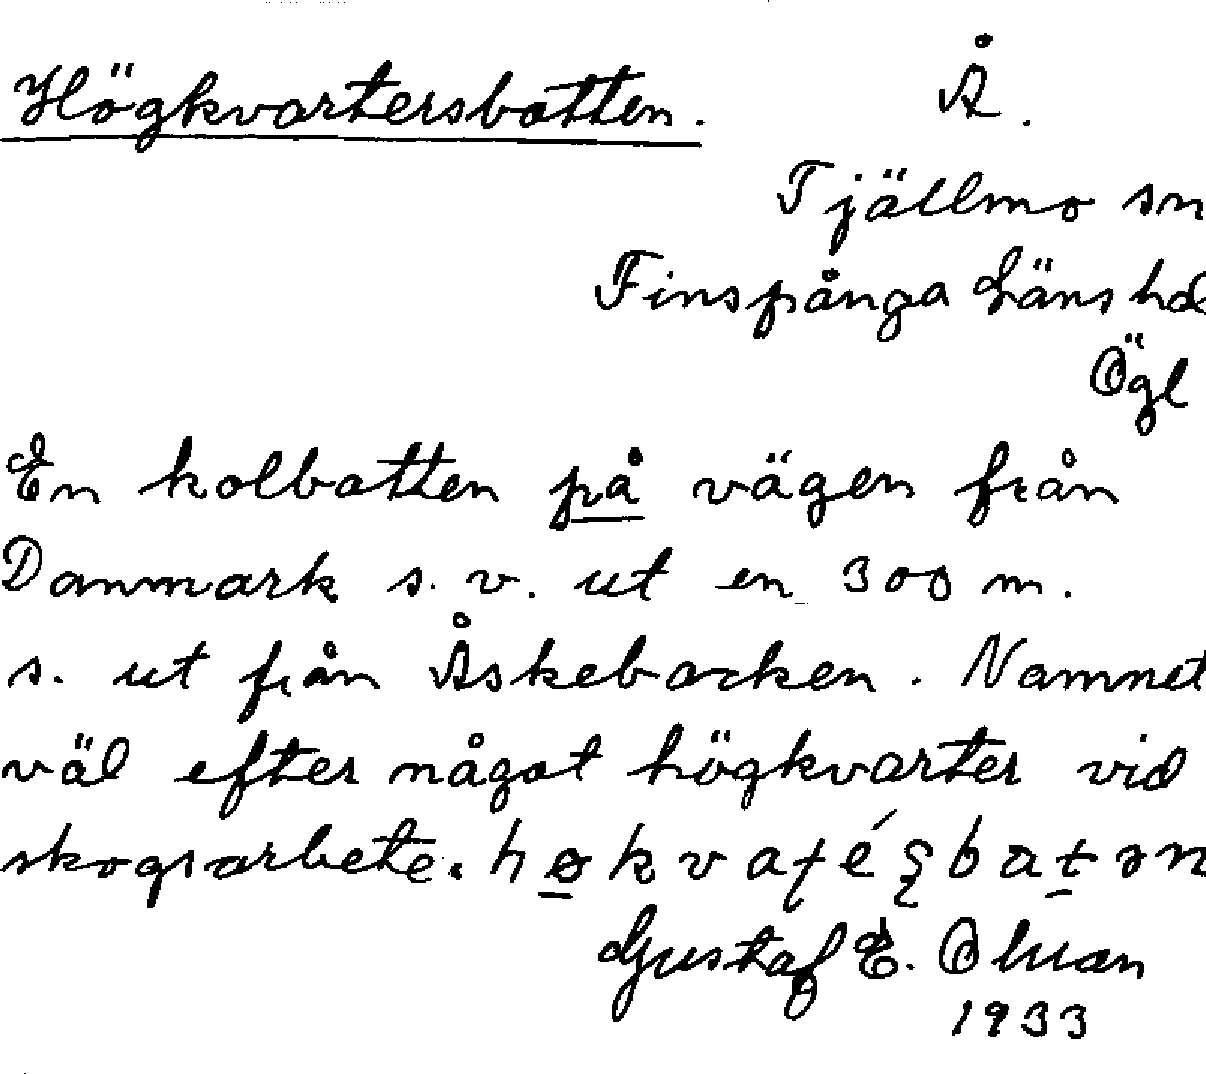 Högkvartersbotten. Å.
Tjällmo sn
Finspånga Läns hd
Ögl
En kolbotten på vägen från
Danmark s.v. ut en 300 m.
s. ut från Åskebacken. Namnet
väl efter något högkvarter vid
skogsarbete.
Gustaf E.
1933